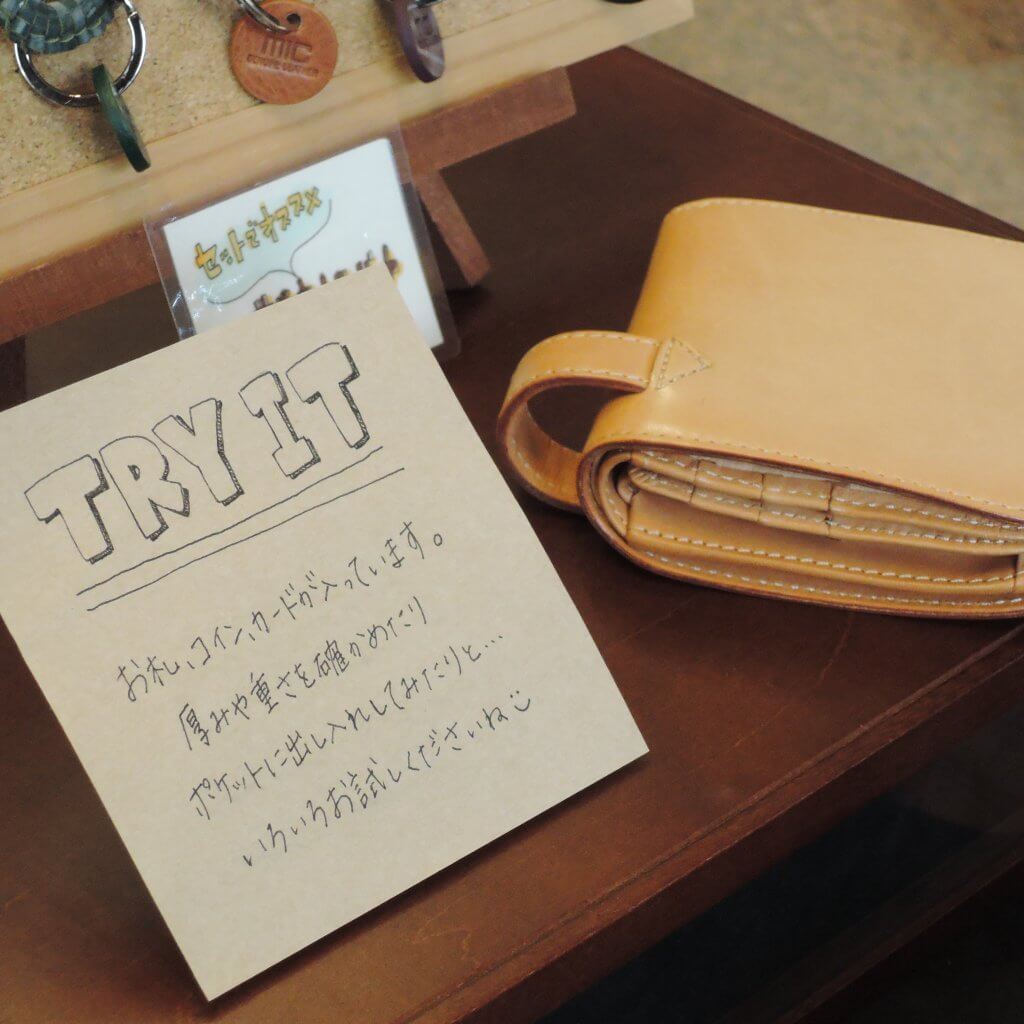 mic
セットでオススメ
TRY IT
お札、コイン、カードが入っています。
厚みや重さを確かめたり
ポケットに出し入れしてみたりと…
いろいろお試しくださいね